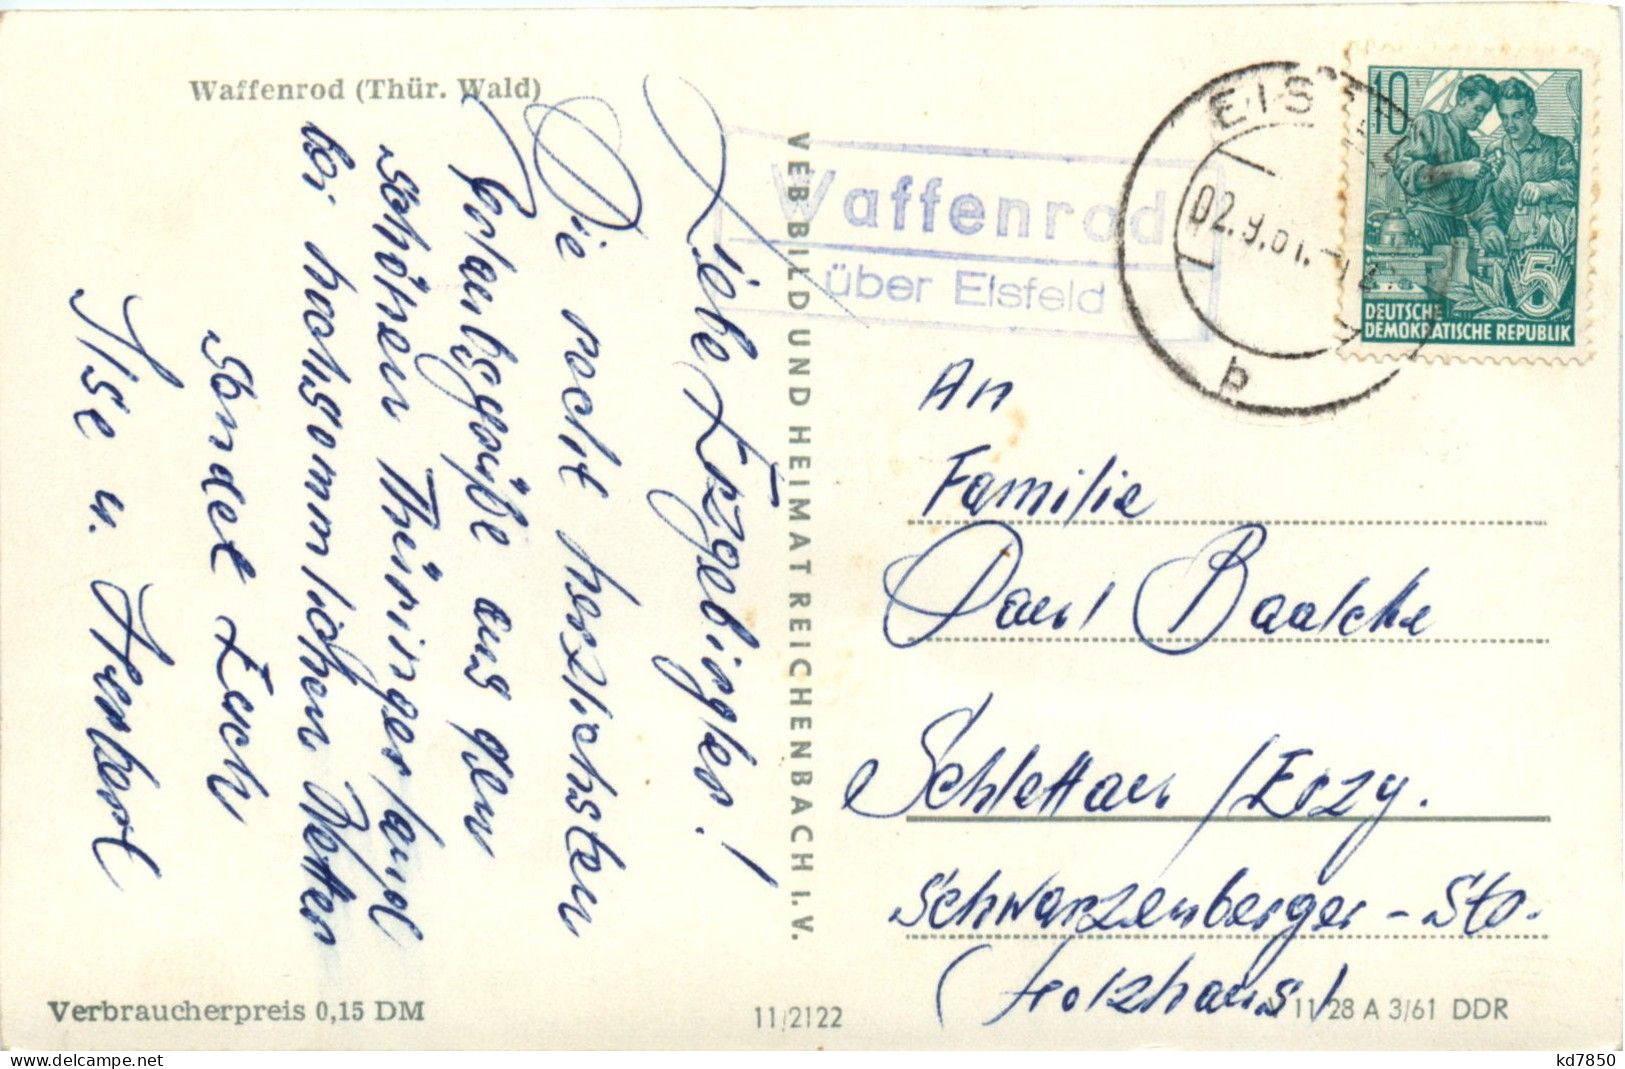 Waffenrod (Thür. Wald)
Liebe Erzgebirgler!
Die recht herzlichsten
Urlaubsgrüße aus dem
schönen Thüringer land
bei hochsommlichen Wetter
sendet Euch
Ilse u. Herbert
Verbraucherpreis 0,15 DM
VEB BILD UND HEIMAT REICHENBACH I. V.
11/2122
Waffenrod
über Eisfeld
EISFELD
02.9.61.
b
10
5
DEUTSCHE
DEMOKRATISCHE REPUBLIK
An
Familie
Paul Baalcke
Schlettau /Erzg.
Schwarzenberger-Str.
(Holzhaus)
V 11/28 A 3/61 DDR
kd7850